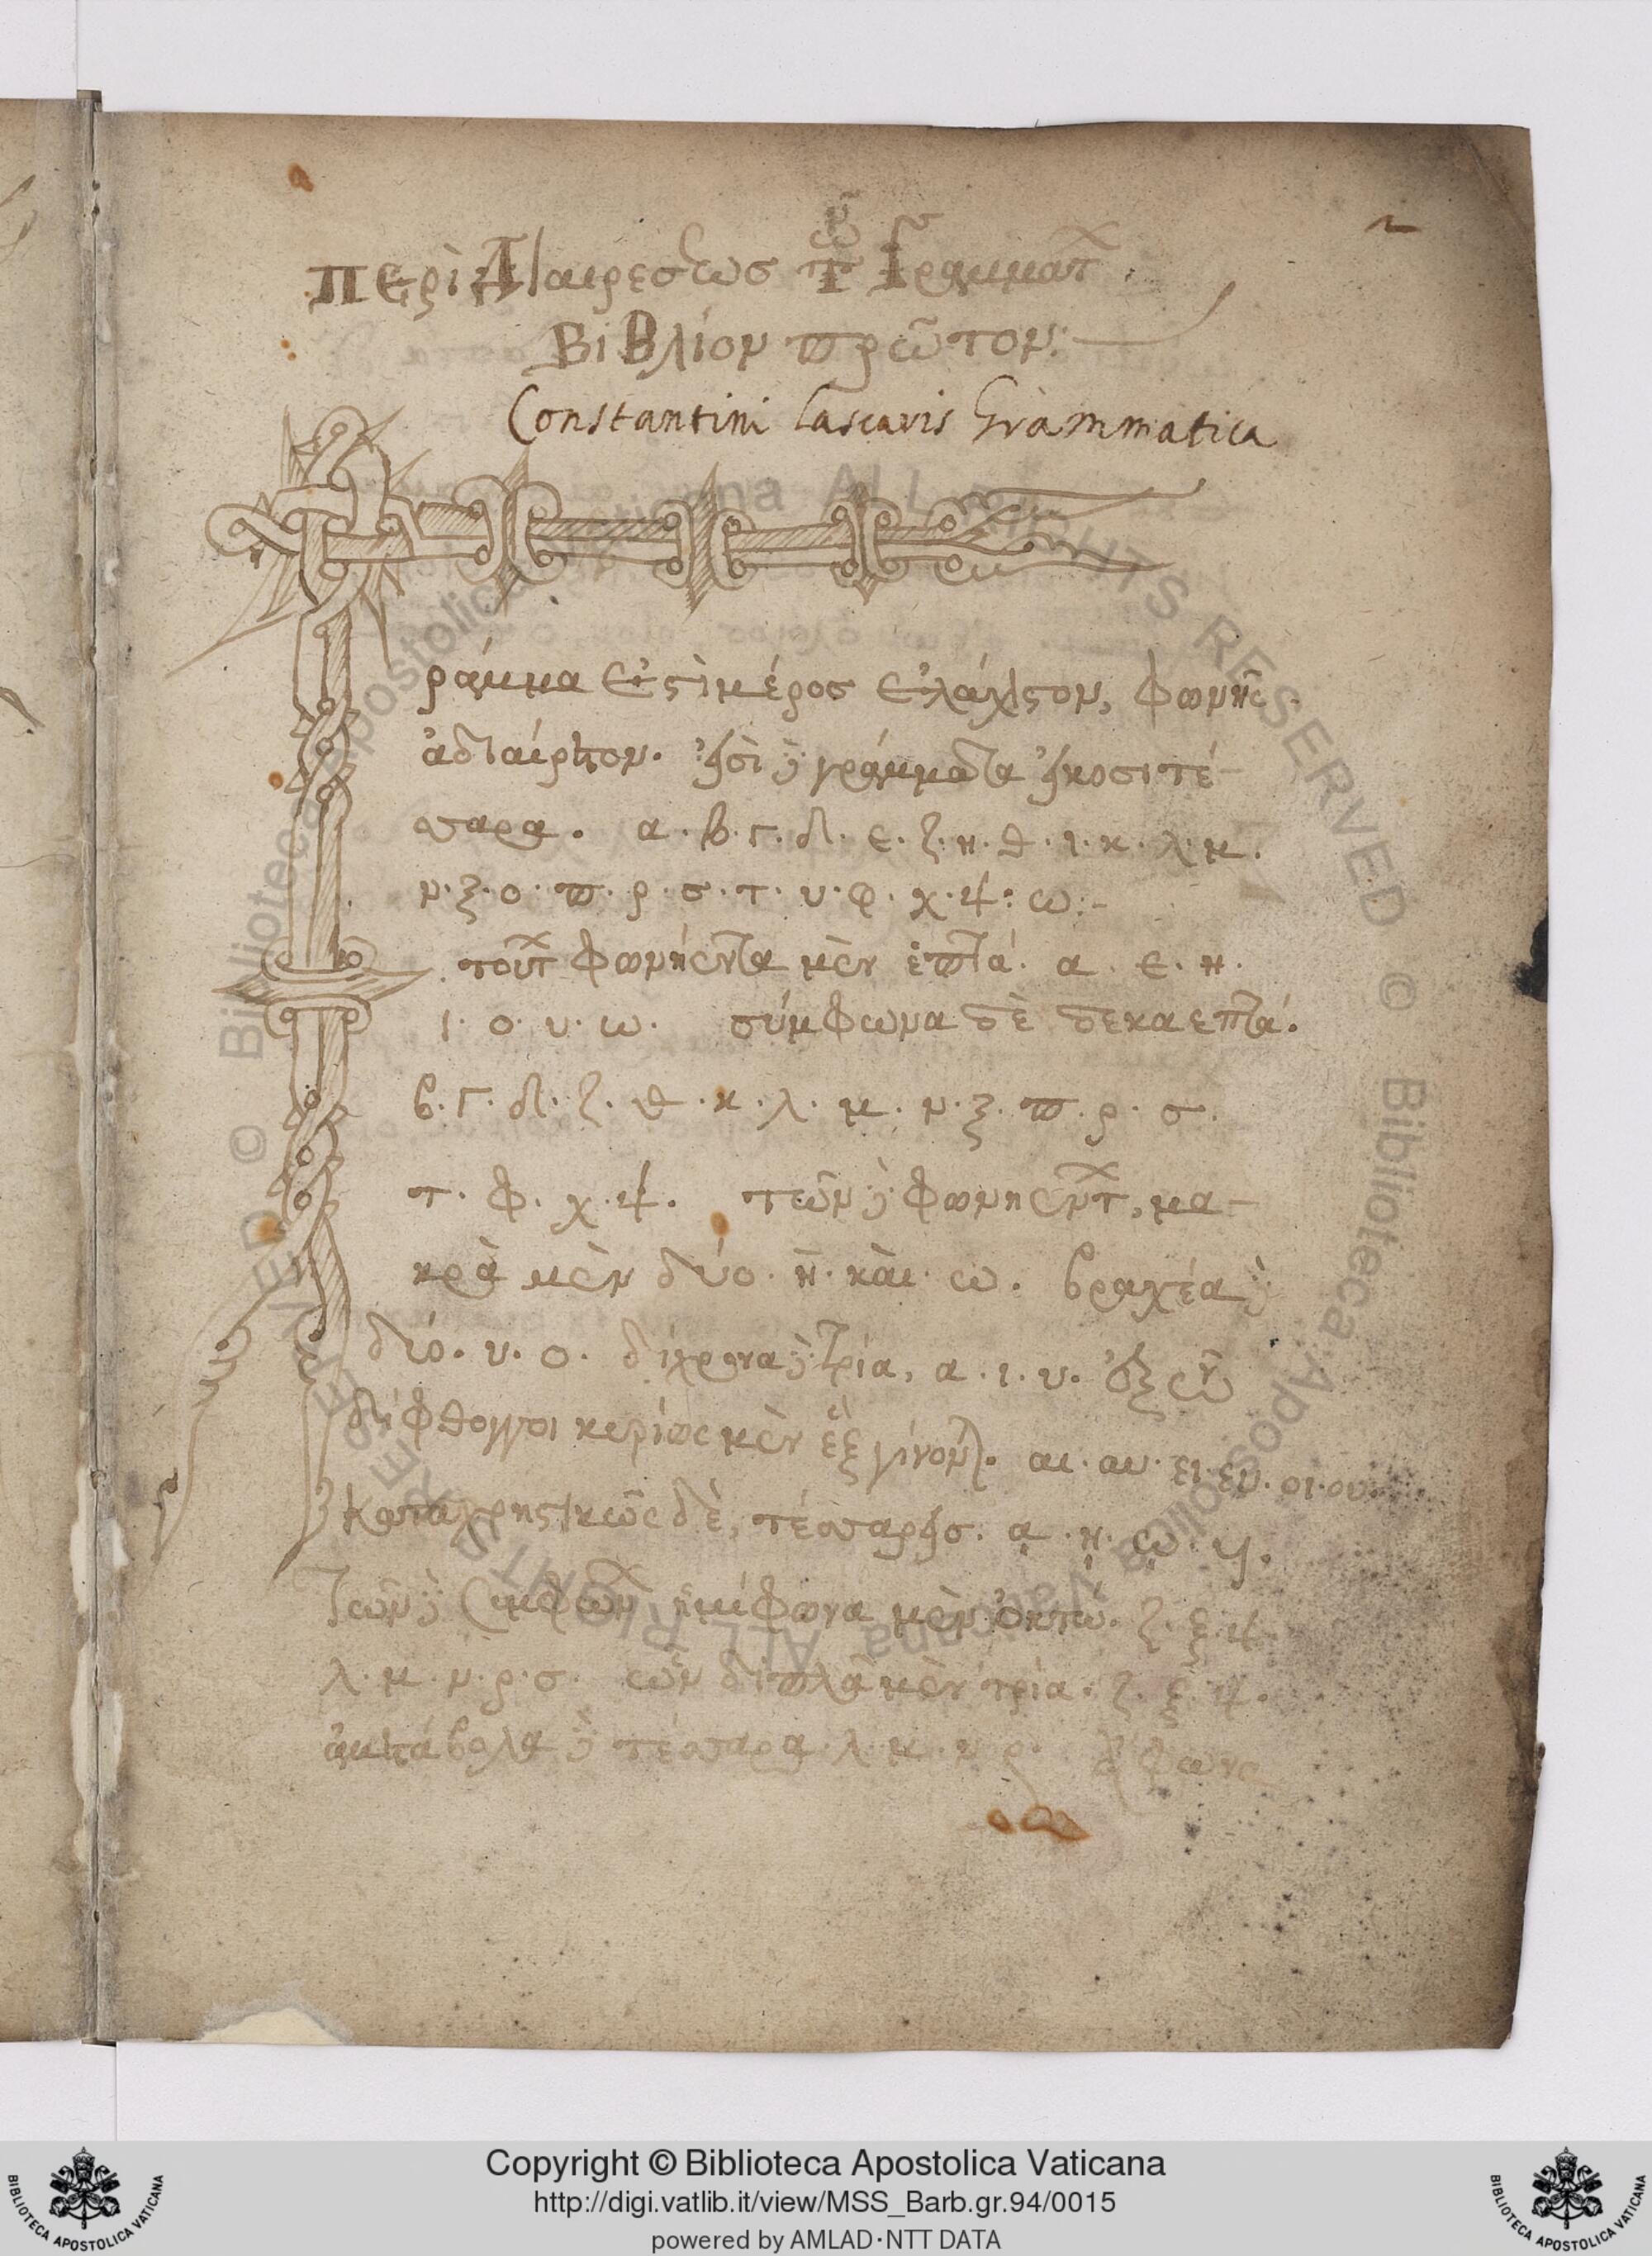 περὶ Διαιρέσεως τῶν Γραμμάτ
Βιβλίον πρῶτον:
Constantini Lascaris Grammatica
ράμμα ἐςὶ μέρος ἐλάχιςον, φωνῆς
ἀδιαίρετον. εἰσὶ δὲ γράμματα εἰκοσιτέ-
σσαρα. α. β. γ. δ. ε. ζ. η. θ. ι. κ. λ. μ.
ν. ξ. ο. π. ρ. σ. τ. υ. φ. χ. ψ: ω:-
τούτ φωνήεντα μὲν ἑπτά. α. ε. η.
ι. ο. υ. ω. σύμφωνα δὲ δεκαεπτά.
β. γ. δ. ζ. θ. κ. λ. μ. ν. ξ. π. ρ. σ.
τ. φ. χ. ψ. τῶν δὲ φωνηέντ, μα-
κρὰ μὲν δύο. η. καὶ. ω. βραχέα δὲ
δύο. ο. δίχρονα δὲ τρία, α. ι. υ. ἐξ ὧν
δίφθογγοι κυρίως μὲν ἓξ γίνονται. αι. αυ. ει. ευ. οι. ου.
καταχρηςικῶς δὲ, τέσσαρεις. ᾳ. ῃ. ῳ. υι.
Τῶν δὲ συμφών ἡμίφωνα μὲν ὀκτώ. ζ. ξ. ψ.
λ. μ. ν. ρ. σ. ὧν διπλᾶ μὲν τρία. ζ. ξ. ψ.
ἀμετάβολα δὲ τέσσαρα. λ. μ. ν. ρ.
Copyright © Biblioteca Apostolica Vaticana
http://digi.vatlib.it/view/MSS_Barb.gr.94/0015
powered by AMLAD·NTT DATA
BIBLIOTECA APOSTOLICA VATICANA
BIBLIOTECA APOSTOLICA VATICANA